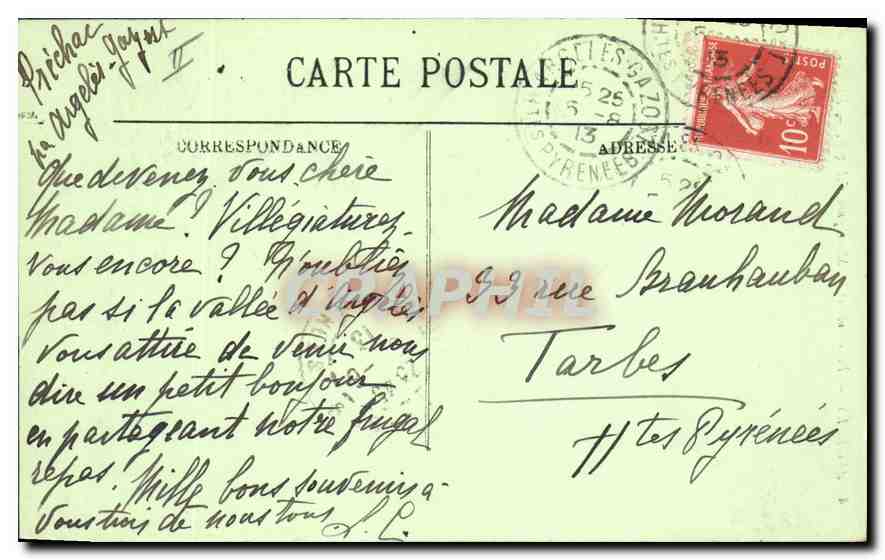 Préchac
par Argelès-Gazost
II
CARTE POSTALE
CORRESPONDANCE
ADRESSE
ARGELES-GAZOST
15 25
5 -8
13
HTES PYRENEES
POSTES
REPUBLIQUE FRANÇAISE
10c
Que devenez vous, chère
Madame? Villégiaturez-
vous encore? N'oubliez
pas si la vallée d'Argelès
vous attire de venir nous
dire un petit bonjour
en partageant notre frugal
repas. Mille bons souvenirs à
vous trois de nous tous
Madame Morand
33 rue Brauhauban
Tarbes
Htes Pyrénées
CPAPHIL